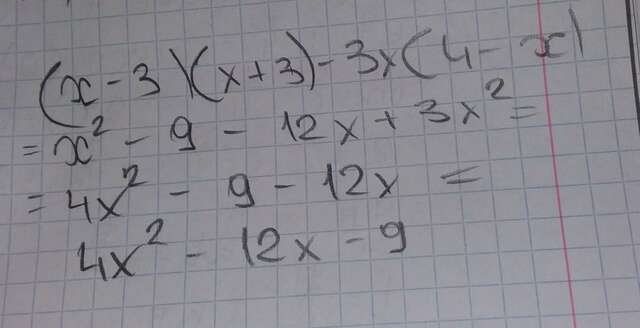 (x-3)(x+3)-3x(4-x)
=x²-9-12x+3x²=
=4x²-9-12x=
4x²-12x-9